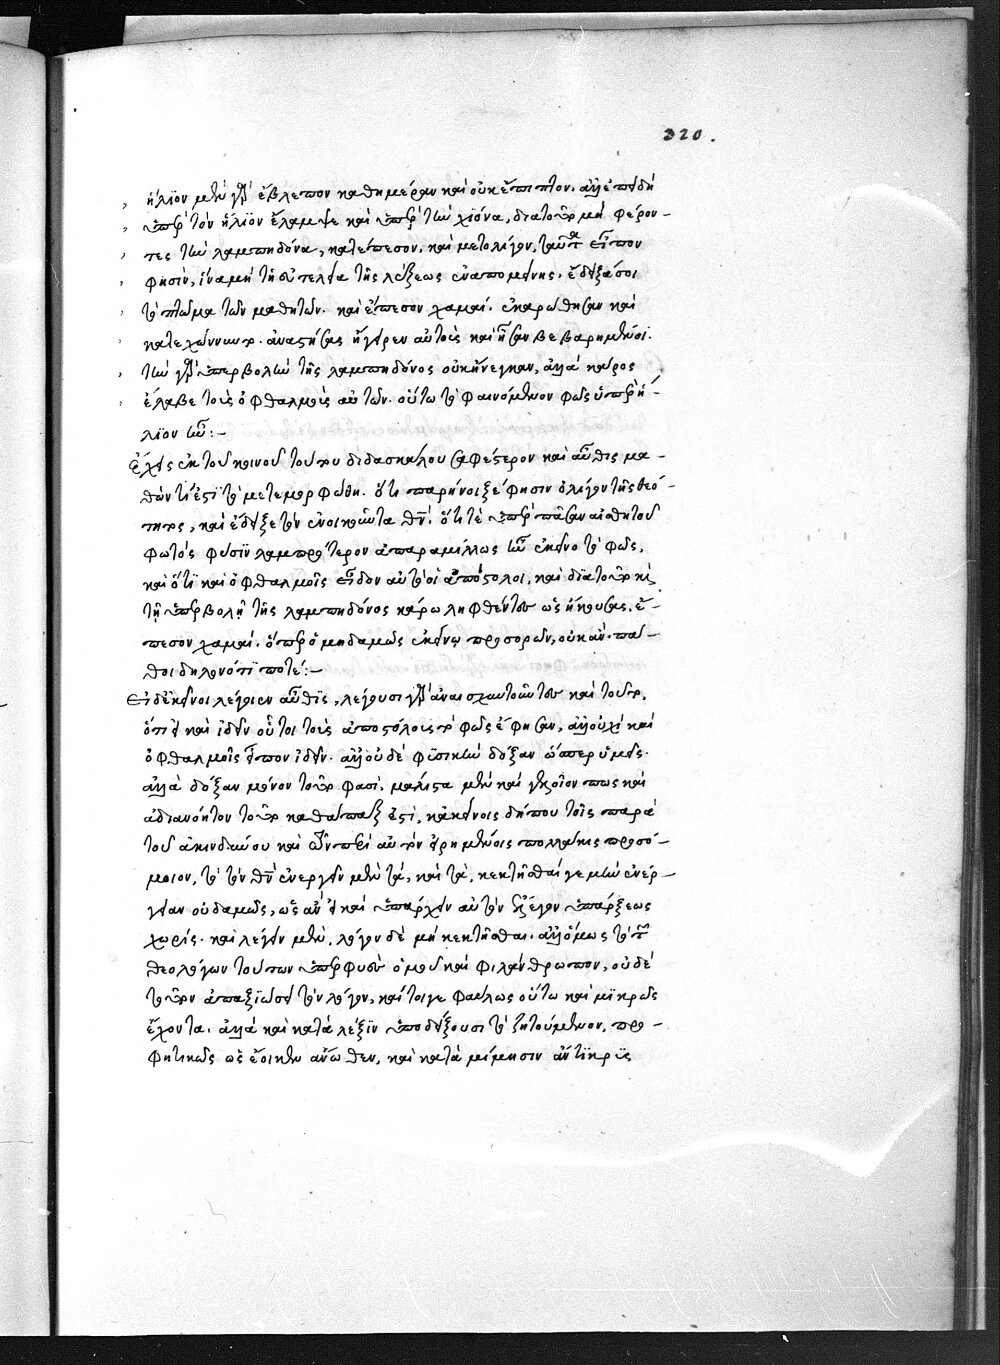 320.
ἥλιον μὲν γὰρ ἔβλεπον καθημέραν καὶ οὐκ ἔπιπτον. ἀλλ' ἐπειδὴ
ὑπὲρ τὸν ἥλιον ἔλαμψε καὶ ὑπὲρ τὴν χιόνα, διατοῦτο μὴ φέρον-
τες τὴν λαμπηδόνα, κατέπεσον. καὶ μετολίγον, ταῦτα εἶπον
φησιν, ἵνα μὴ τῇ εὐτελείᾳ τῆς λέξεως ἐναπομείνῃς. ἔδειξά σοι
τὸ πτῶμα τῶν μαθητῶν. καὶ ἔπεσον χαμαί. ἐκαρώθησαν καὶ
κατεχώννυντο. ἀναστήσας ἤγειρεν αὐτοὺς καὶ ἦσαν βεβαρημένοι.
τὴν γὰρ ὑπερβολὴν τῆς λαμπηδόνος οὐκ ἤνεγκαν, ἀλλὰ κάρος
ἔλαβε τοὺς ὀφθαλμοὺς αὐτῶν. οὕτω τὸ φαινόμενον φῶς ὑπὲρ ἥ-
λιον ἦν:-
Ἔχεις ἐκ τοῦ κοινοῦ τούτου διδασκάλου σαφέστερον καὶ αὖθις μα-
θὼν τί ἐστι τὸ μετεμορφώθη. ὅτι παρήνοιξέ φησιν ὀλίγον τῆς θεό-
τητος, καὶ ἔδειξε τὸν ἐνοικοῦντα θν. ὅτι τὲ ὑπὲρ πᾶσαν αἰσθητοῦ
φωτὸς φύσιν λαμπρότερον ἀπαραμίλλως ἦν ἐκεῖνο τὸ φῶς,
καὶ ὅτι καὶ ὀφθαλμοῖς εἶδον αὐτὸ οἱ ἀπόστολοι, καὶ διατοῦτο καὶ
τῇ ὑπερβολῇ τῆς λαμπηδόνος κάρῳ ληφθέντες ὡς ἤκουσας, ἔ-
πεσον χαμαί. ὅπερ ὁ μηδαμῶς ἐκείνῳ προσορῶν, οὐκ ἂν πά-
θοι δηλονότι ποτέ:-
Εἰ δ' ἐκεῖνοι λέγοιεν αὖθις, λέγουσι γὰρ ἀναισχυντοῦντες καὶ τοῦτο,
ὅτι εἰ καὶ ἰδεῖν οὗτοι τοὺς ἀποστόλους τὸ φῶς ἔφησαν, ἀλλ' οὐχὶ καὶ
ὀφθαλμοῖς εἶπον ἰδεῖν. ἀλλ' οὐδὲ φυσικὴν δόξαν ὥσπερ ὑμεῖς.
ἀλλὰ δόξαν μόνον τοῦτο φασί, μάλιστα μὲν καὶ γελοῖον πως καὶ
ἀδιανόητον τοῦτο καθάπαξ ἐστί, κἀκείνοις δήπου τοῖς παρὰ
τοῦ ἀκινδύνου καὶ ὧν περὶ αὐτὸν εἰρημένοις πολλάκις προσό-
μοιον, τὸ τὸν θν ἐνεργεῖν μὲν τά, καὶ τά, κεκτῆσθαί γε μὴν ἐνέρ-
γειαν οὐδαμῶς, ὡς ἂν εἰ καὶ ὑπάρχειν αὐτὸν ἔλεγον ὑπάρξεως
χωρίς. καὶ λέγειν μέν, λόγον δὲ μὴ κεκτῆσθαι. ἀλλ' ὅμως τὸ τῶν
θεολόγων τούτων ὑπερφυὲς ὁμοῦ καὶ φιλάνθρωπον, οὐδὲ
τοῦτον ἀπαξίωσε τὸν λόγον, καίτοιγε φαύλως οὕτω καὶ μικρῶς
ἔχοντα. ἀλλὰ καὶ κατὰ λέξιν ὑποδείξουσι τὸ ζητούμενον, προ-
φητικῶς ὡς ἔοικεν ἄνωθεν, καὶ κατὰ μίμησιν ἀντικρὺς